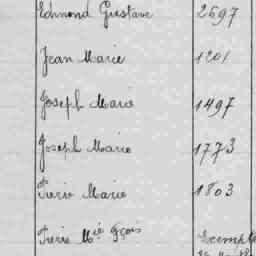 Edmond Gustave 2697
Jean Marie 1201
Joseph Marie 1497
Joseph Marie 1773
Pierre Marie 1803
Pierre Mie Fçois Exempté